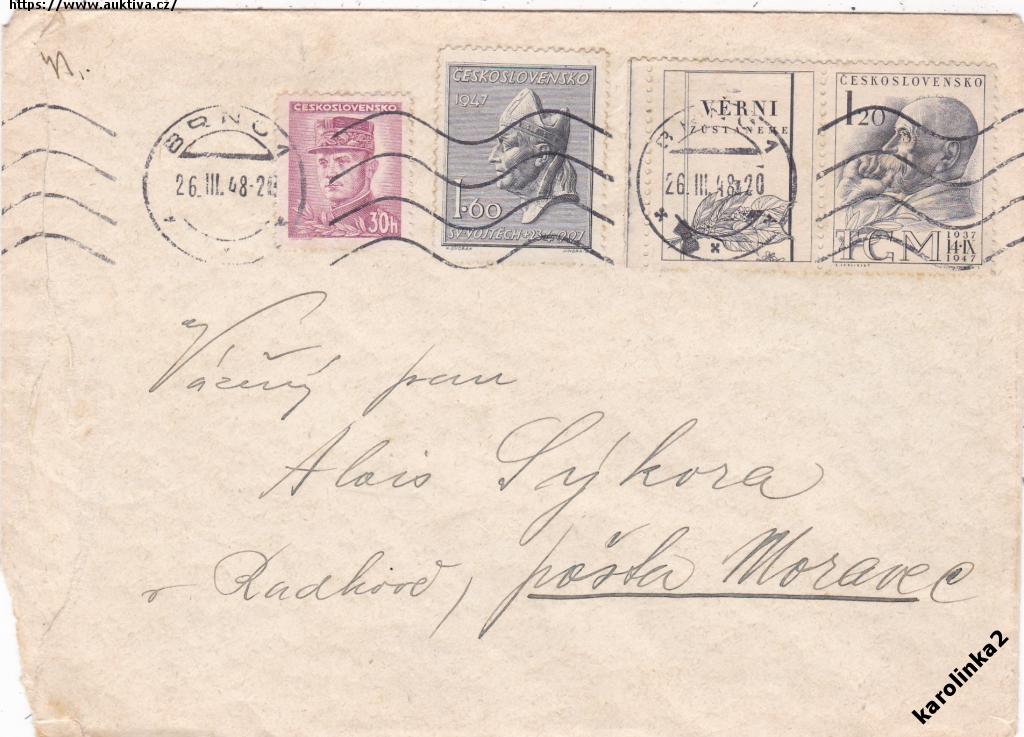 https://www.auktiva.cz/
BRNO 1
26.III.48-20
ČESKOSLOVENSKO
30h
ČESKOSLOVENSKO
1947
1·60
SV. VOJTĚCH +23.IV.997
VĚRNI
ZŮSTANEME
BRNO 1
26.III.48-20
ČESKOSLOVENSKO
1 20
TGM 1937 14·IX 1947
Vážený pan
Alois Sýkora
v Radkově, pošta Moravec
karolinka2